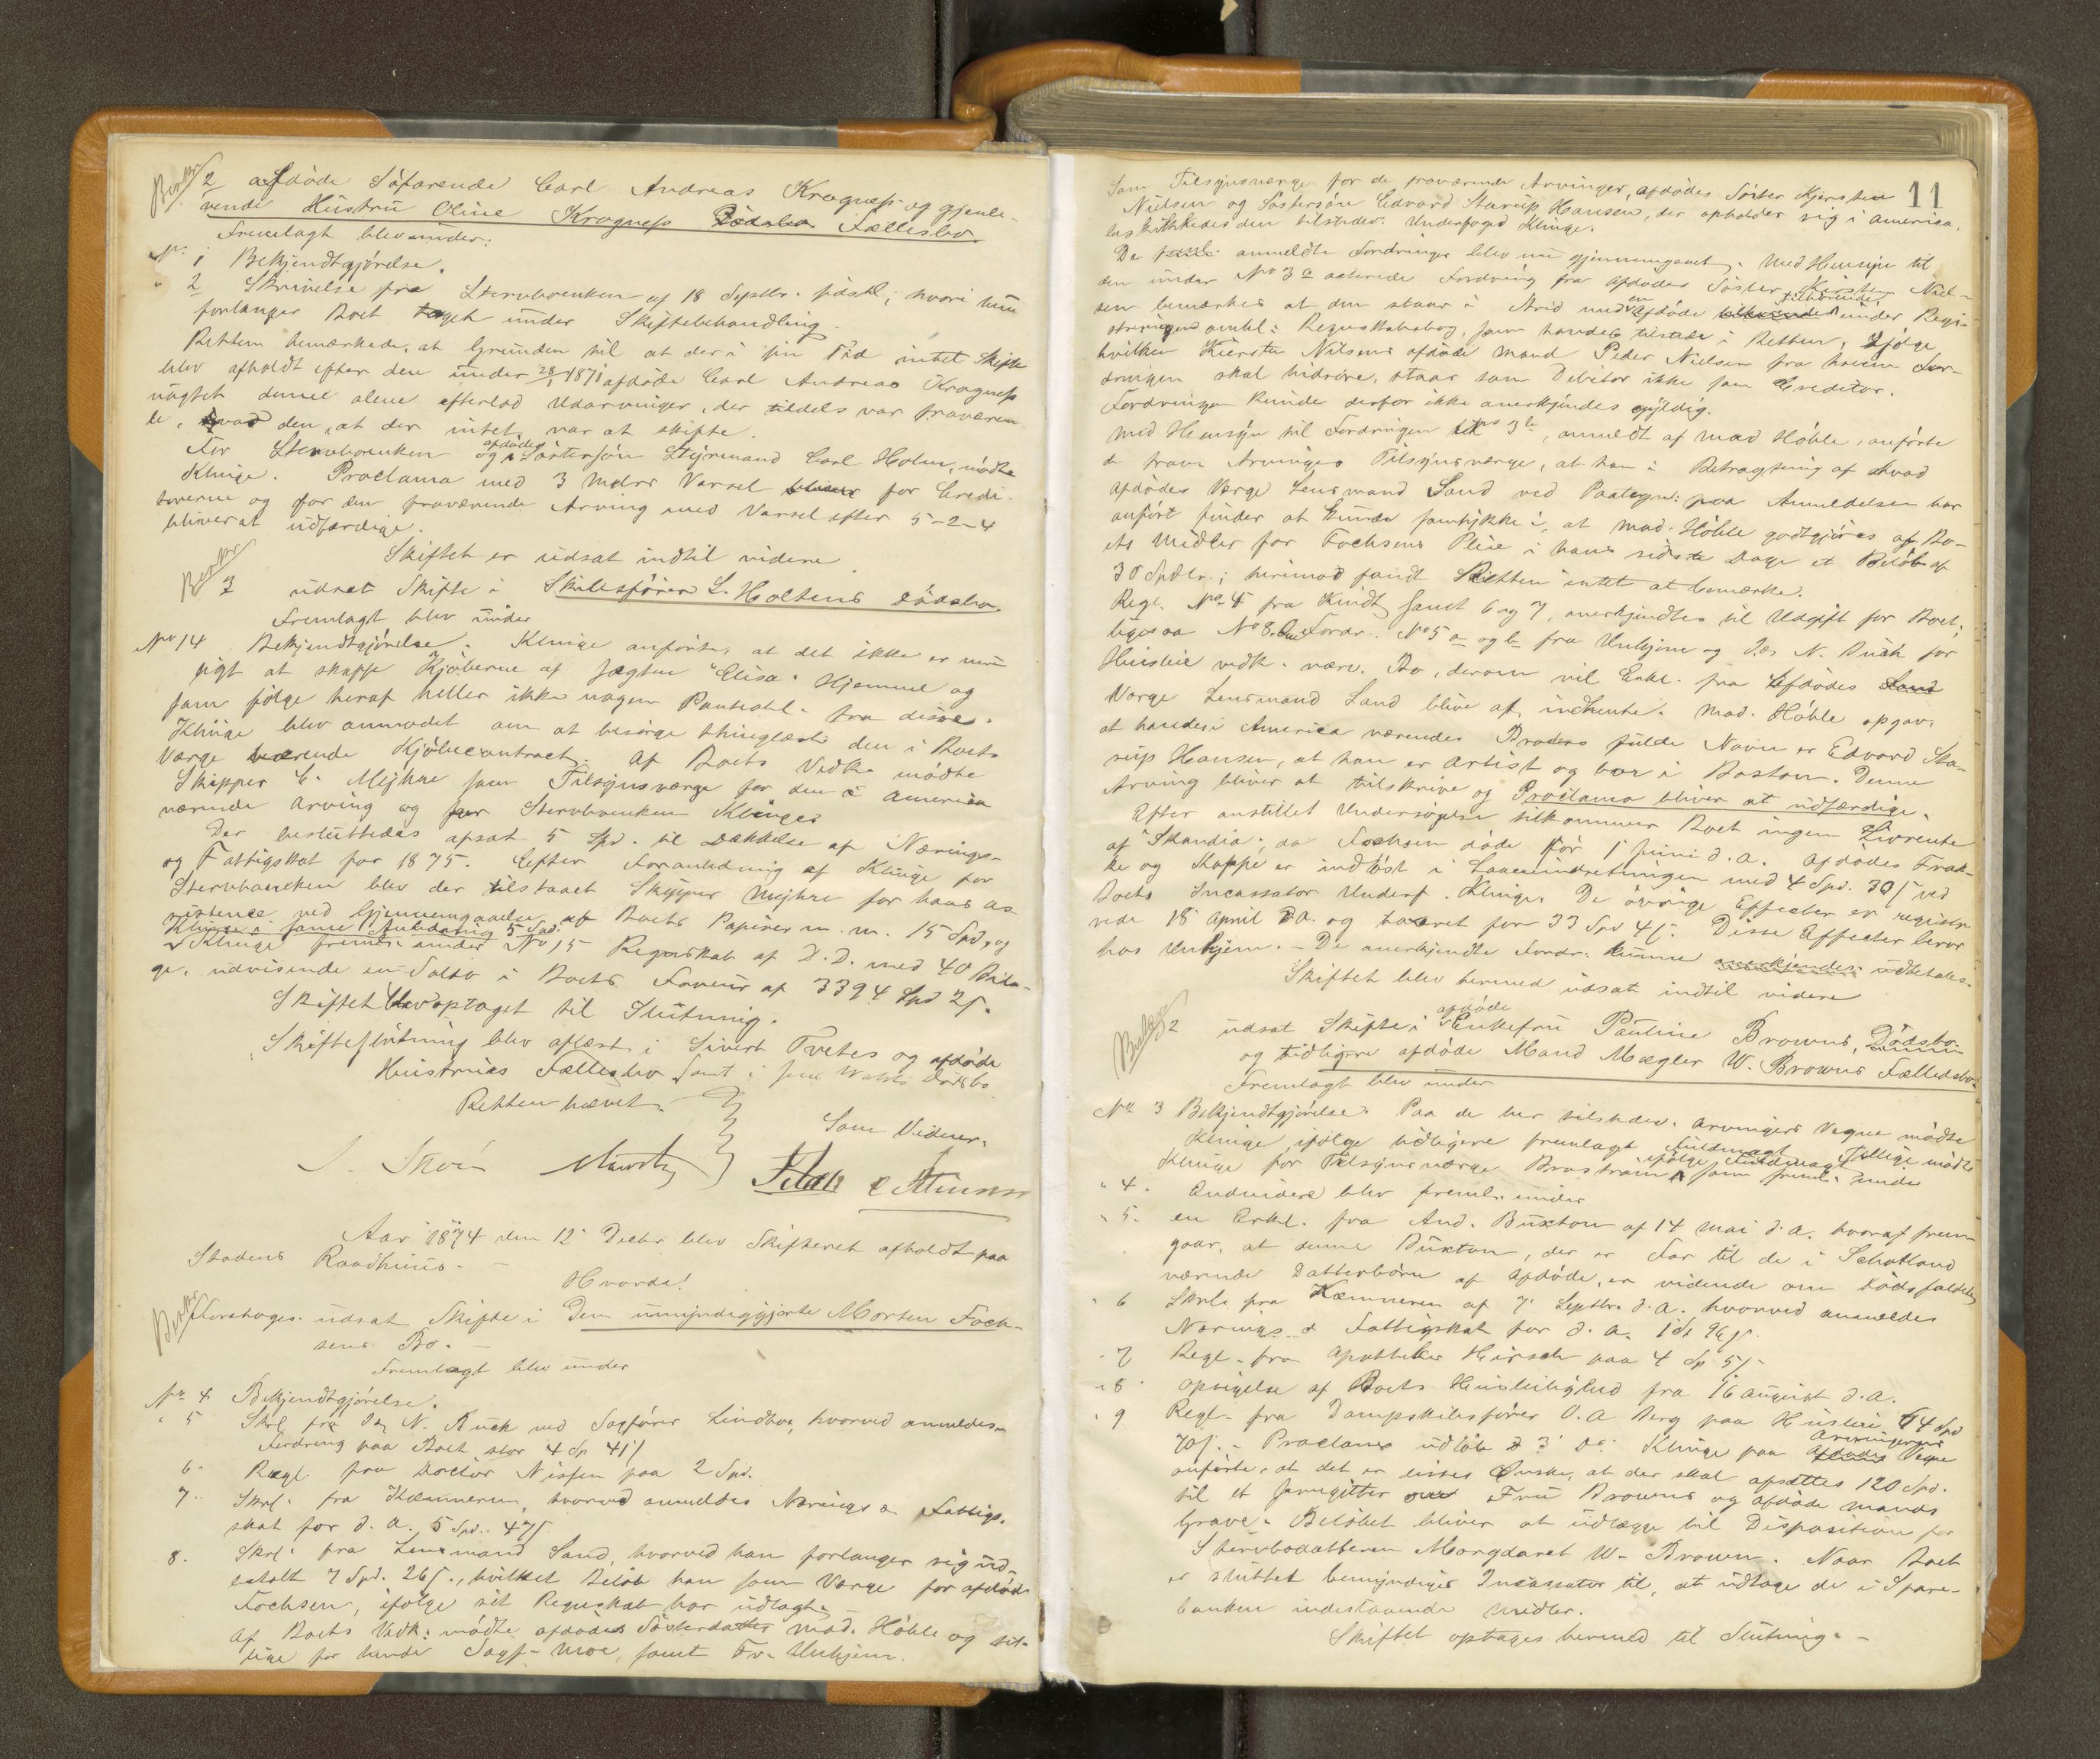 2 afdöde Söfarende Carl Andreas Kragness og gjenle-
vende Hustru Oline Kragness Fællesbo
Fremlagt blev under:
No 1 Bekjendtgjörelse.
" 2 Skrivelse fra Stervboenken af 18 Septbr. sidstl., hvori hun
forlanger Boet taget under Skiftebehandling.
Retten bemærkede, at Grunden til at der i sin Tid intet Skifte
blev afholdt efter den under 28/1 1871 afdöde Carl Andreas Kragness
uagtet denne alene efterlod Udarvinger, der tildels var fraværen-
de, var den, at der intet var at skifte.
For Stervboenken og afdödes Söstersön Styrmand Carl Holm, mödte
Klinge. Proclama med 3 Mdrs Varsel for Credi-
torerne og for den fraværende Arving med Varsel efter 5-2-4
bliver at udfærdige.
Skiftet er udsat indtil videre.
3 udsat Skifte i Skibsförer L. Holtens Dödsbo
Fremlagt blev under
No 14 Bekjendtgjörelse. Klinge anförte, at det ikke er mu-
ligt at skaffe Kjöberne af Jagten "Elisa" Hjemmel og
som fölge heraf heller ikke nogen Panteobl. fra disse.
Klinge blev anmodet om at besörge thinglæst den i Boets
Værge værende Kjöbecontract. Af Boets Vedk. mödte
Skipper E. Myhre som Tilsynsværge for den i America
værende Arving og for Stervboenken Klinge.
Der besluttedes afsat 5 Spd. til Dækkelse af Nærings-
og Fattigskat for 1875. Efter Foranledning af Klinge for
Stervboenken blev der tilstaaet Skipper Myhre for hans As-
sistence ved Gjennemgaaelse af Boets Papirer m. m. 15 Spd, og
Klinge i samme Anledning 5 Spd.
Klinge freml. under No 15 Regnskab af D. D. med 40 Bila-
ge, udvisende en Saldo i Boets Faveur af 3394 Spd 2 s.
Skiftet blev optaget til Slutning.
Skifteslutning blev aflæst i Sivert Tvetes og afdöde
Hustrues Fællesbo samt i Dödsbo
Retten hævet.
Som Vidner.
Aar 1874 den 12 Decbr blev Skifteret afholdt paa
Stadens Raadhuus.
Hvorda!
Foretoges udsat Skifte i Den umyndiggjorte Morten Foch-
sens Bo.
Fremlagt blev under
No 4 Bekjendtgjörelse.
" 5 Skrl. fra N. Buck ved Sagförer Lindboe, hvorved anmeldes
Fordring paa Boet stor 4 Sp 41 s
6 Regl. fra Doctor Nissen paa 2 Spd.
7. Skrl. fra Kæmneren, hvorved anmeldes Nærings & Fattigs-
skat for d. A. 5 Spd. 47 s.
8. Skrl. fra Lensmand Sand, hvorved han forlanger sig ud-
betalt 7 Spd. 26 s., hvilket Belöb han som Værge for afdöde
Fochsen, ifölge sit Regnskab har udlagt.
Af Boets Vedk. mödte afdödes Sösterdatter Mad. Höhle og til-
lige for hende Sagf. Moe, samt Fv. Unhjem.
11
Som Tilsynsværge for de fraværende Arvinger, afdödes Söster Kjersten
Nielsen og Söstersön Edvard Starup Hansen, der opholder sig i America,
beskikkedes den tilstedev. Underfoged Klinge.
De anmeldte Fordringer blev nu gjennemgaaet. Med Hensyn til
den under No 3a acterede Fordring fra afdödes Söster Kersten Niel-
sen bemærkes at den staar i Strid med en afdöde tilhörende under Regi-
streringen antl. Regnskabsbog, som havdes tilstede i Retten, ifölge
hvilken Kiersten Nilsens afdöde Mand Peder Nielsen fra hvem For-
dringen skal hidröre, staar som Debitor ikke som Creditor.
Fordringen kunde derfor ikke anerkjendes gyldig.
Med Hensyn til Fordringen No 3b, anmeldt af Mad Höhle, anförte
de fravæ. Arvinges Tilsynsværge, at han i Betragtning af hvad
afdödes Værge Lensmand Sand ved Paategn. paa Anmeldelsen har
anfört finder at kunde samtykke i, at Mad. Höhle godtgjöres af Bo-
ets Midler for Fochsens Pleie i hans sidste Dage et Belöb af
30 Spdlr.; herimod fandt Retten intet at bemærke.
Regl. No 4 fra Kindt samt 6 og 7, anerkjendtes til Udgift for Boet;
ligesaa No 8. Fordr. No 5 a og b fra Unhjem og N. Buck for
Huusleie vedk. nærv. Bo, derom vil Erkl. fra afdödes
Værge Lensmand Sand blive at indhente. Mad. Höhle opgav,
at hendes i America værendes Broders fulde Navn er Edvard Sta-
rup Hansen, at han er Artist og bor i Boston. Denne
Arving bliver at tilskrive og Proclama bliver at udfærdige.
Efter anstillet Undersögelse tilkommer Boet ingen Livrente
af "Skandia", da Fochsen döde för 1 Juni d. A. Afdödes Frak-
ke og Kappe er indlöst i Laaneindretningen med 4 Spd. 30 s ved
Boets Incassator Underf. Klinge. De övrige Effecter er registre-
rede 18 April d. A. og taxeret for 33 Spd 4 s. Disse Effecter beror
hos Unhjem. – De anerkjendte Fordr. kunne udbetales.
Skiftet blev hermed udsat indtil videre
2 udsat Skifte i afdöde Enkefru Pauline Browns, Dödsbo
og tidligere afdöde Mand Mægler W. Browns Fællesbo.
Fremlagt blev under
No 3 Bekjendtgjörelse. Paa de her tilstedev. Arvingers Vegne mödte
Klinge, ifölge tidligere fremlagt Fuldmagt. Tillige mödte
Klinge for Tilsynsværge Broström ifölge Fuldmagt som freml. under
" 4. Endvidere blev freml. under
" 5. en Erkl. fra And. Buxton af 14 Mai d. A. hvoraf frem-
gaar, at denne Buxton, der er Far til de i Schotland
værende Datterbörn af Afdöde, er vidende om Dödsfaldet
" 6 Skrl. fra Kæmneren af 7 Septbr. d. A. hvorved anmeldes
Nærings & Fattigskat for d. A. 1 Sp 96 s.
" 7 Regl. fra Apotheker Hirsch paa 4 Sp 5 s.
" 8 Opsigelse af Boets Huusleilighed fra 16 August d. A.
" 9 Regl. fra Dampskibsförer O. A. Berg paa Huusleie 14 Spd
70 s. – Proclama udlöb d 3 ds. Klinge paa Arvingernes Vegne
anförte, at det er disses Önske, at der skal afsættes 120 Spd.
til et Jerngitter over Fru Browns og afdöde Mands
Grave. Belöbet bliver at udlægge til Disposition for
Stervbodatteren Margdaret W. Brown. Naar Boet
er sluttet bemyndiges Incassator til, at udtage de i Spare-
banken indestaaende Midler.
Skiftet optages hermed til Slutning. –